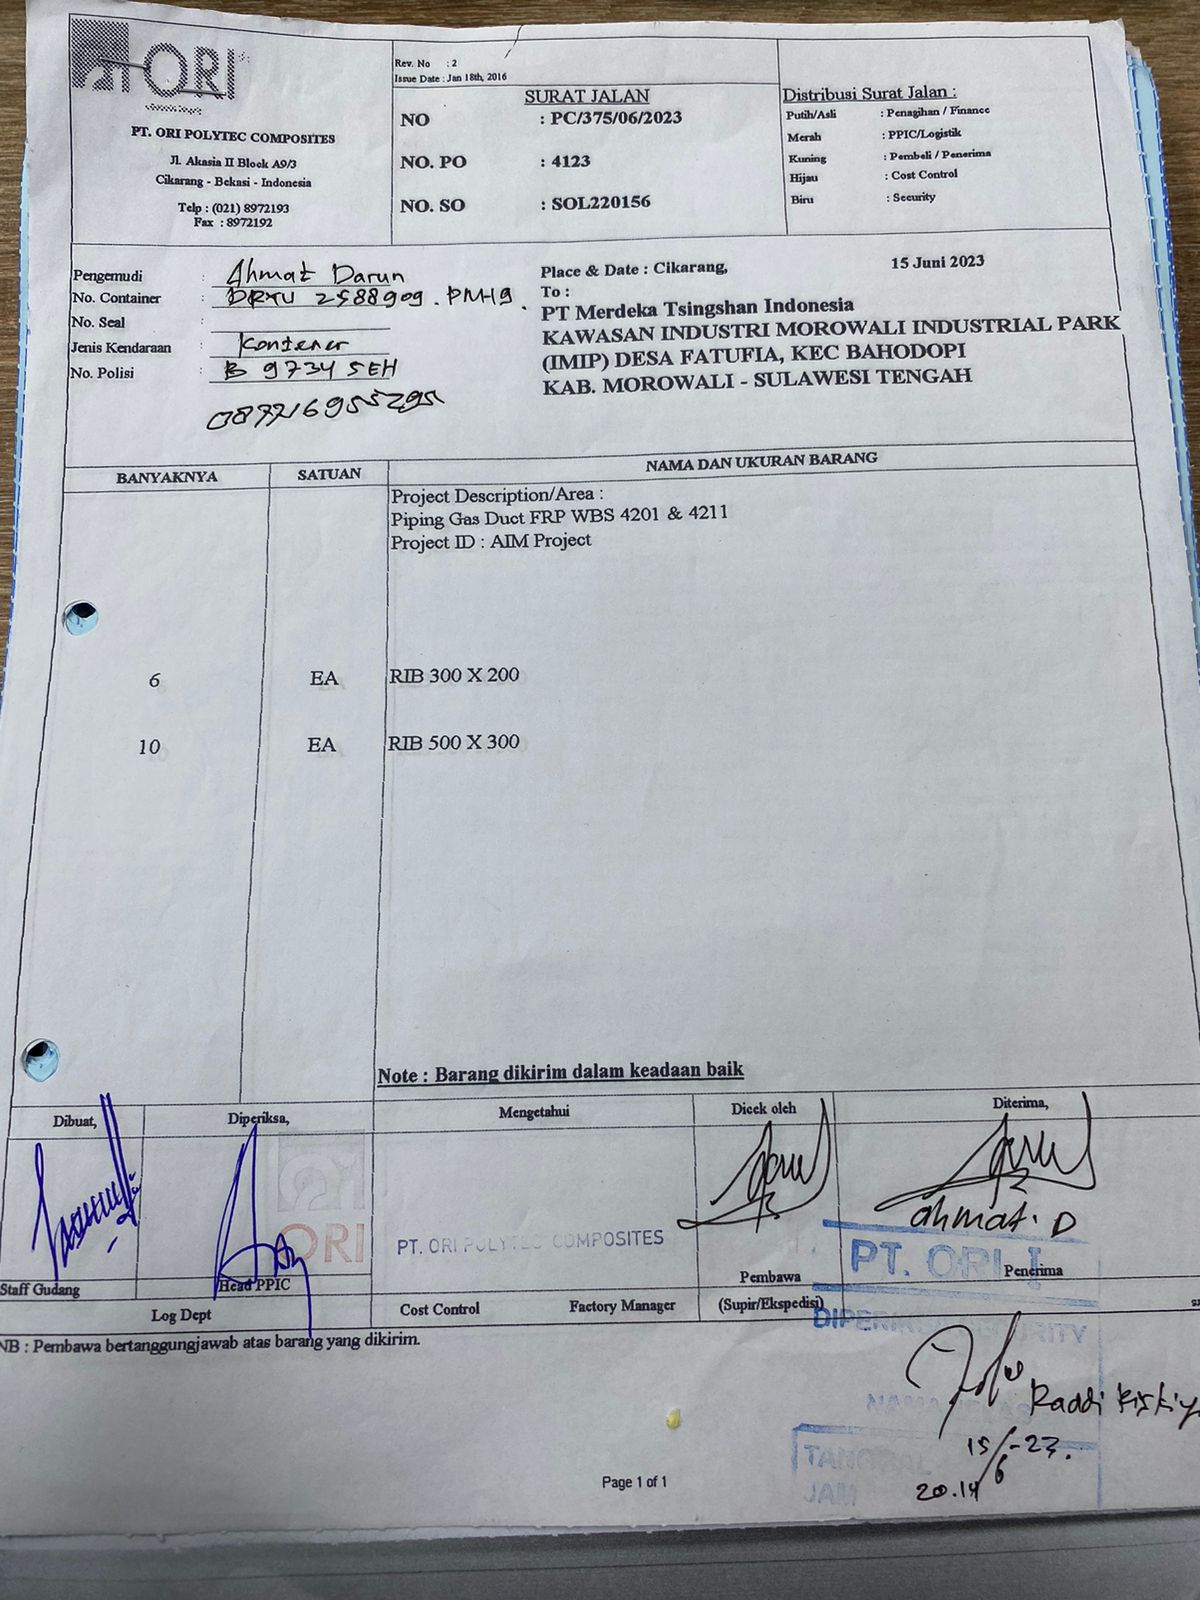 ORI
PT. ORI POLYTEC COMPOSITES
Jl. Akasia II Block A9/3
Cikarang - Bekasi - Indonesia
Telp : (021) 8972193
Fax : 8972192
Rev. No : 2
Issue Date : Jan 18th, 2016
SURAT JALAN
NO : PC/375/06/2023
NO. PO : 4123
NO. SO : SOL220156
Distribusi Surat Jalan :
Putih/Asli : Penagihan / Finance
Merah : PPIC/Logistik
Kuning : Pembeli / Penerima
Hijau : Cost Control
Biru : Security
Pengemudi : Ahmat Darun
No. Container : DRYU 2588909 . PM19
No. Seal :
Jenis Kendaraan : Kontener
No. Polisi : B 9734 SEH
Place & Date : Cikarang, 15 Juni 2023
To :
PT Merdeka Tsingshan Indonesia
KAWASAN INDUSTRI MOROWALI INDUSTRIAL PARK
(IMIP) DESA FATUFIA, KEC BAHODOPI
KAB. MOROWALI - SULAWESI TENGAH
BANYAKNYA SATUAN NAMA DAN UKURAN BARANG
Project Description/Area :
Piping Gas Duct FRP WBS 4201 & 4211
Project ID : AIM Project
6 EA RIB 300 X 200
10 EA RIB 500 X 300
Note : Barang dikirim dalam keadaan baik
Dibuat, Diperiksa, Mengetahui Dicek oleh Diterima,
ahmat. D
ORI
PT. ORI POLYTEC COMPOSITES
PT. ORI
Staff Gudang Head PPIC Pembawa Penerima
Log Dept Cost Control Factory Manager (Supir/Ekspedisi)
NB : Pembawa bertanggungjawab atas barang yang dikirim.
Raddi
15/6-23.
TANGGAL
JAM 20.14
Page 1 of 1